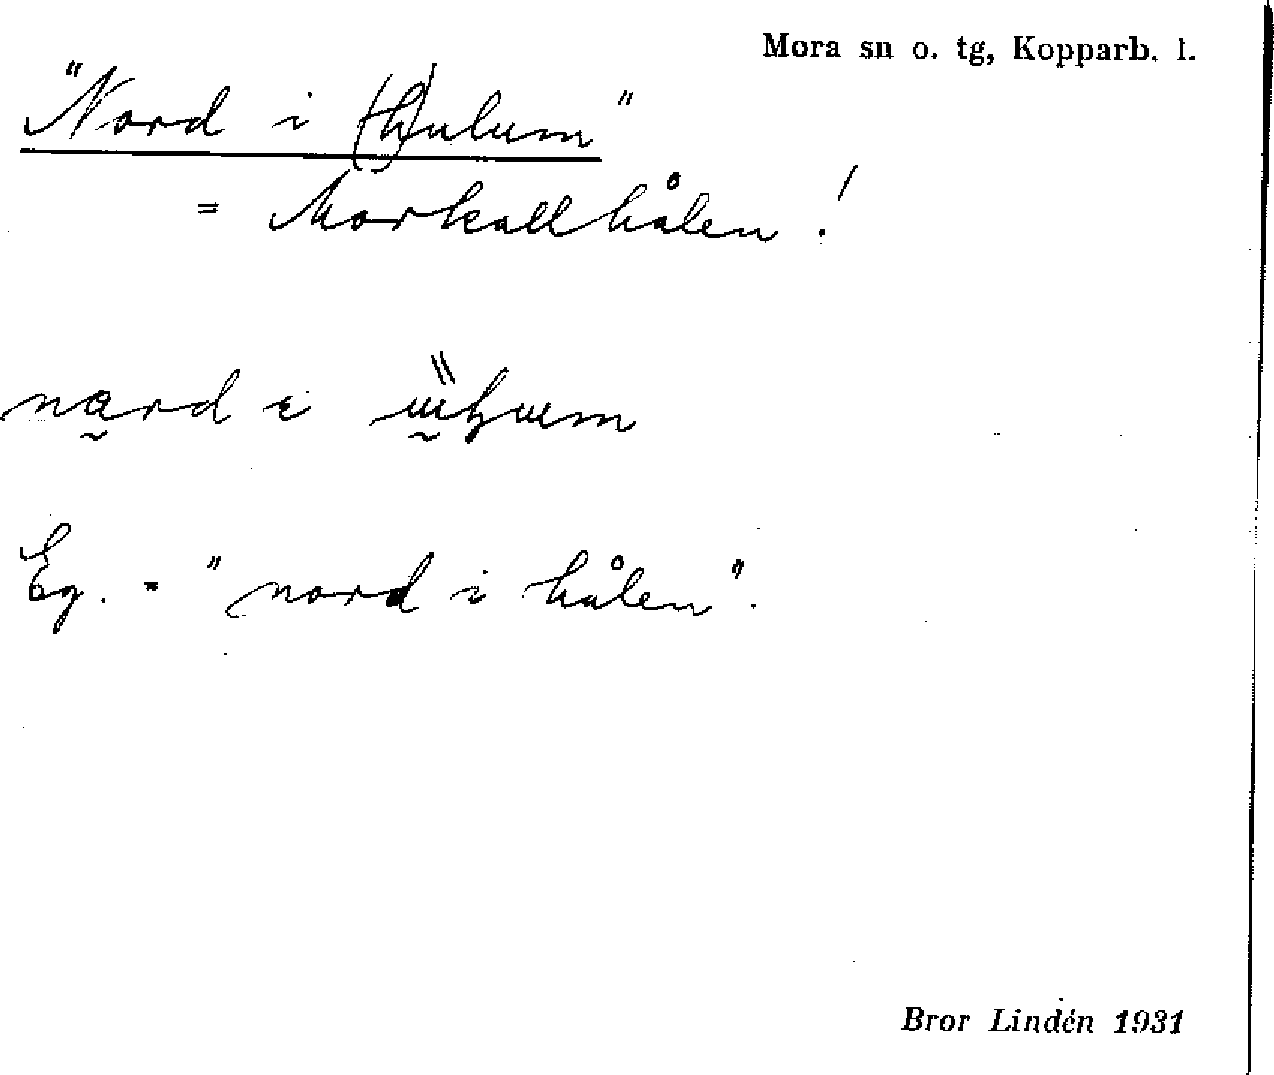 Mora sn o. tg, Kopparb. l.
"Nord i (h)ulum"
= Morkallhålen!
Eg. = "nord i hålen".
Bror Lindén 1931